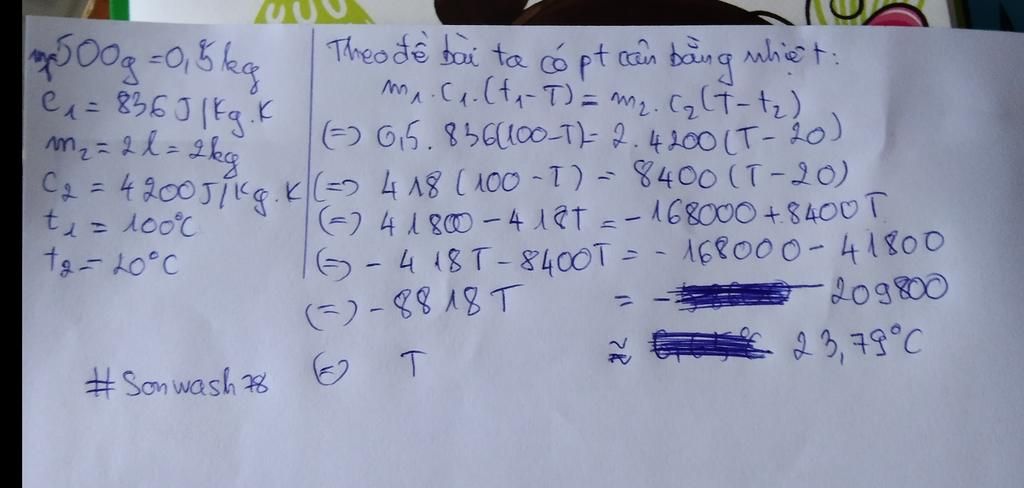 m₁ 500g = 0,5kg
c₁ = 836J/kg.K
m₂ = 2l = 2kg
c₂ = 4200J/kg.K
t₁ = 100°C
t₂ = 20°C
Theo đề bài ta có pt cân bằng nhiệt:
m₁.c₁.(t₁-T) = m₂.c₂(T-t₂)
(=) 0,5.836(100-T) = 2.4200(T-20)
(=) 418(100-T) = 8400(T-20)
(=) 41800-418T = -168000+8400T
(=) -418T-8400T = -168000-41800
(=) -8818T = - 209800
(=) T ≈ 23,79°C
#Sonwash78